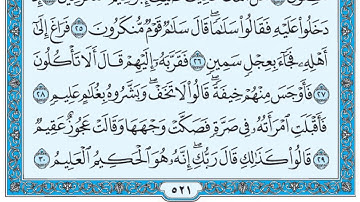 دَخَلُوا۟ عَلَيْهِ فَقَالُوا۟ سَلَـٰمًا ۖ قَالَ سَلَـٰمٌ قَوْمٌ مُّنكَرُونَ ٢٥ فَرَاغَ إِلَىٰٓ
أَهْلِهِۦ فَجَآءَ بِعِجْلٍ سَمِينٍ ٢٦ فَقَرَّبَهُۥٓ إِلَيْهِمْ قَالَ أَلَا تَأْكُلُونَ
٢٧ فَأَوْجَسَ مِنْهُمْ خِيفَةً ۖ قَالُوا۟ لَا تَخَفْ ۖ وَبَشَّرُوهُ بِغُلَـٰمٍ عَلِيمٍ ٢٨
فَأَقْبَلَتِ ٱمْرَأَتُهُۥ فِى صَرَّةٍ فَصَكَّتْ وَجْهَهَا وَقَالَتْ عَجُوزٌ عَقِيمٌ
٢٩ قَالُوا۟ كَذَٰلِكِ قَالَ رَبُّكِ ۖ إِنَّهُۥ هُوَ ٱلْحَكِيمُ ٱلْعَلِيمُ ٣٠
٥٢١